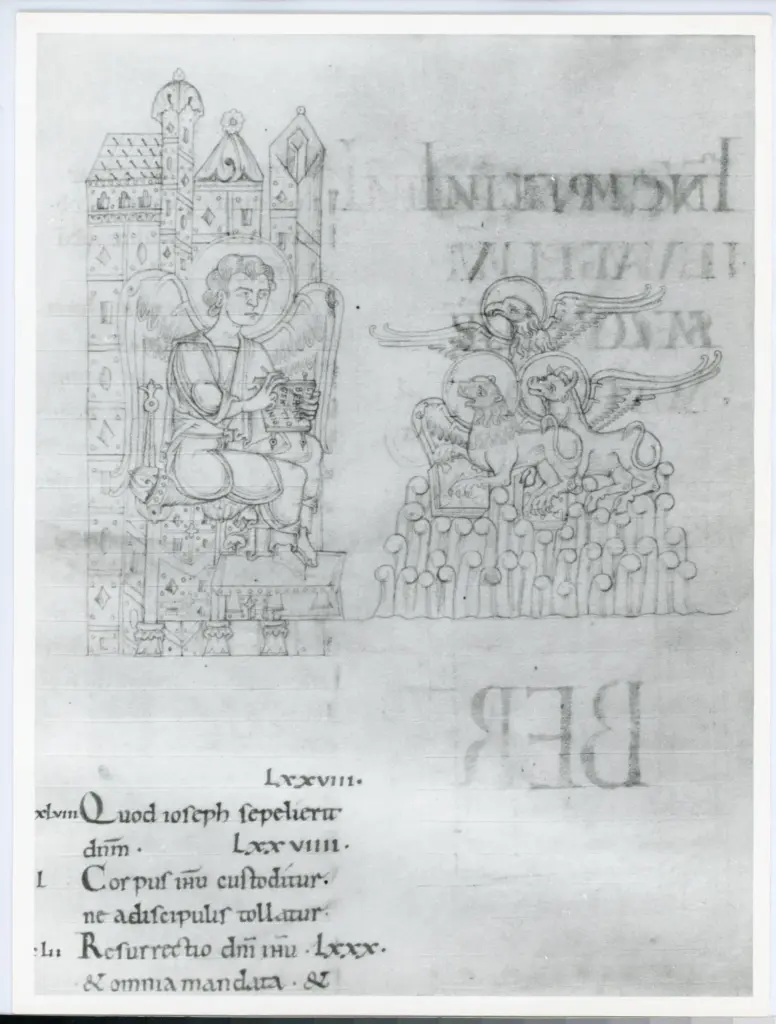 BER
Lxxviii.
xLviii Quod ioseph sepelierit
dn̄m . Lxxviiii.
L Corpus ih̄u custoditur.
ne adiscipulis tollatur.
Resurrectio dn̄i ih̄u . Lxxx.
& omnia mandata . &